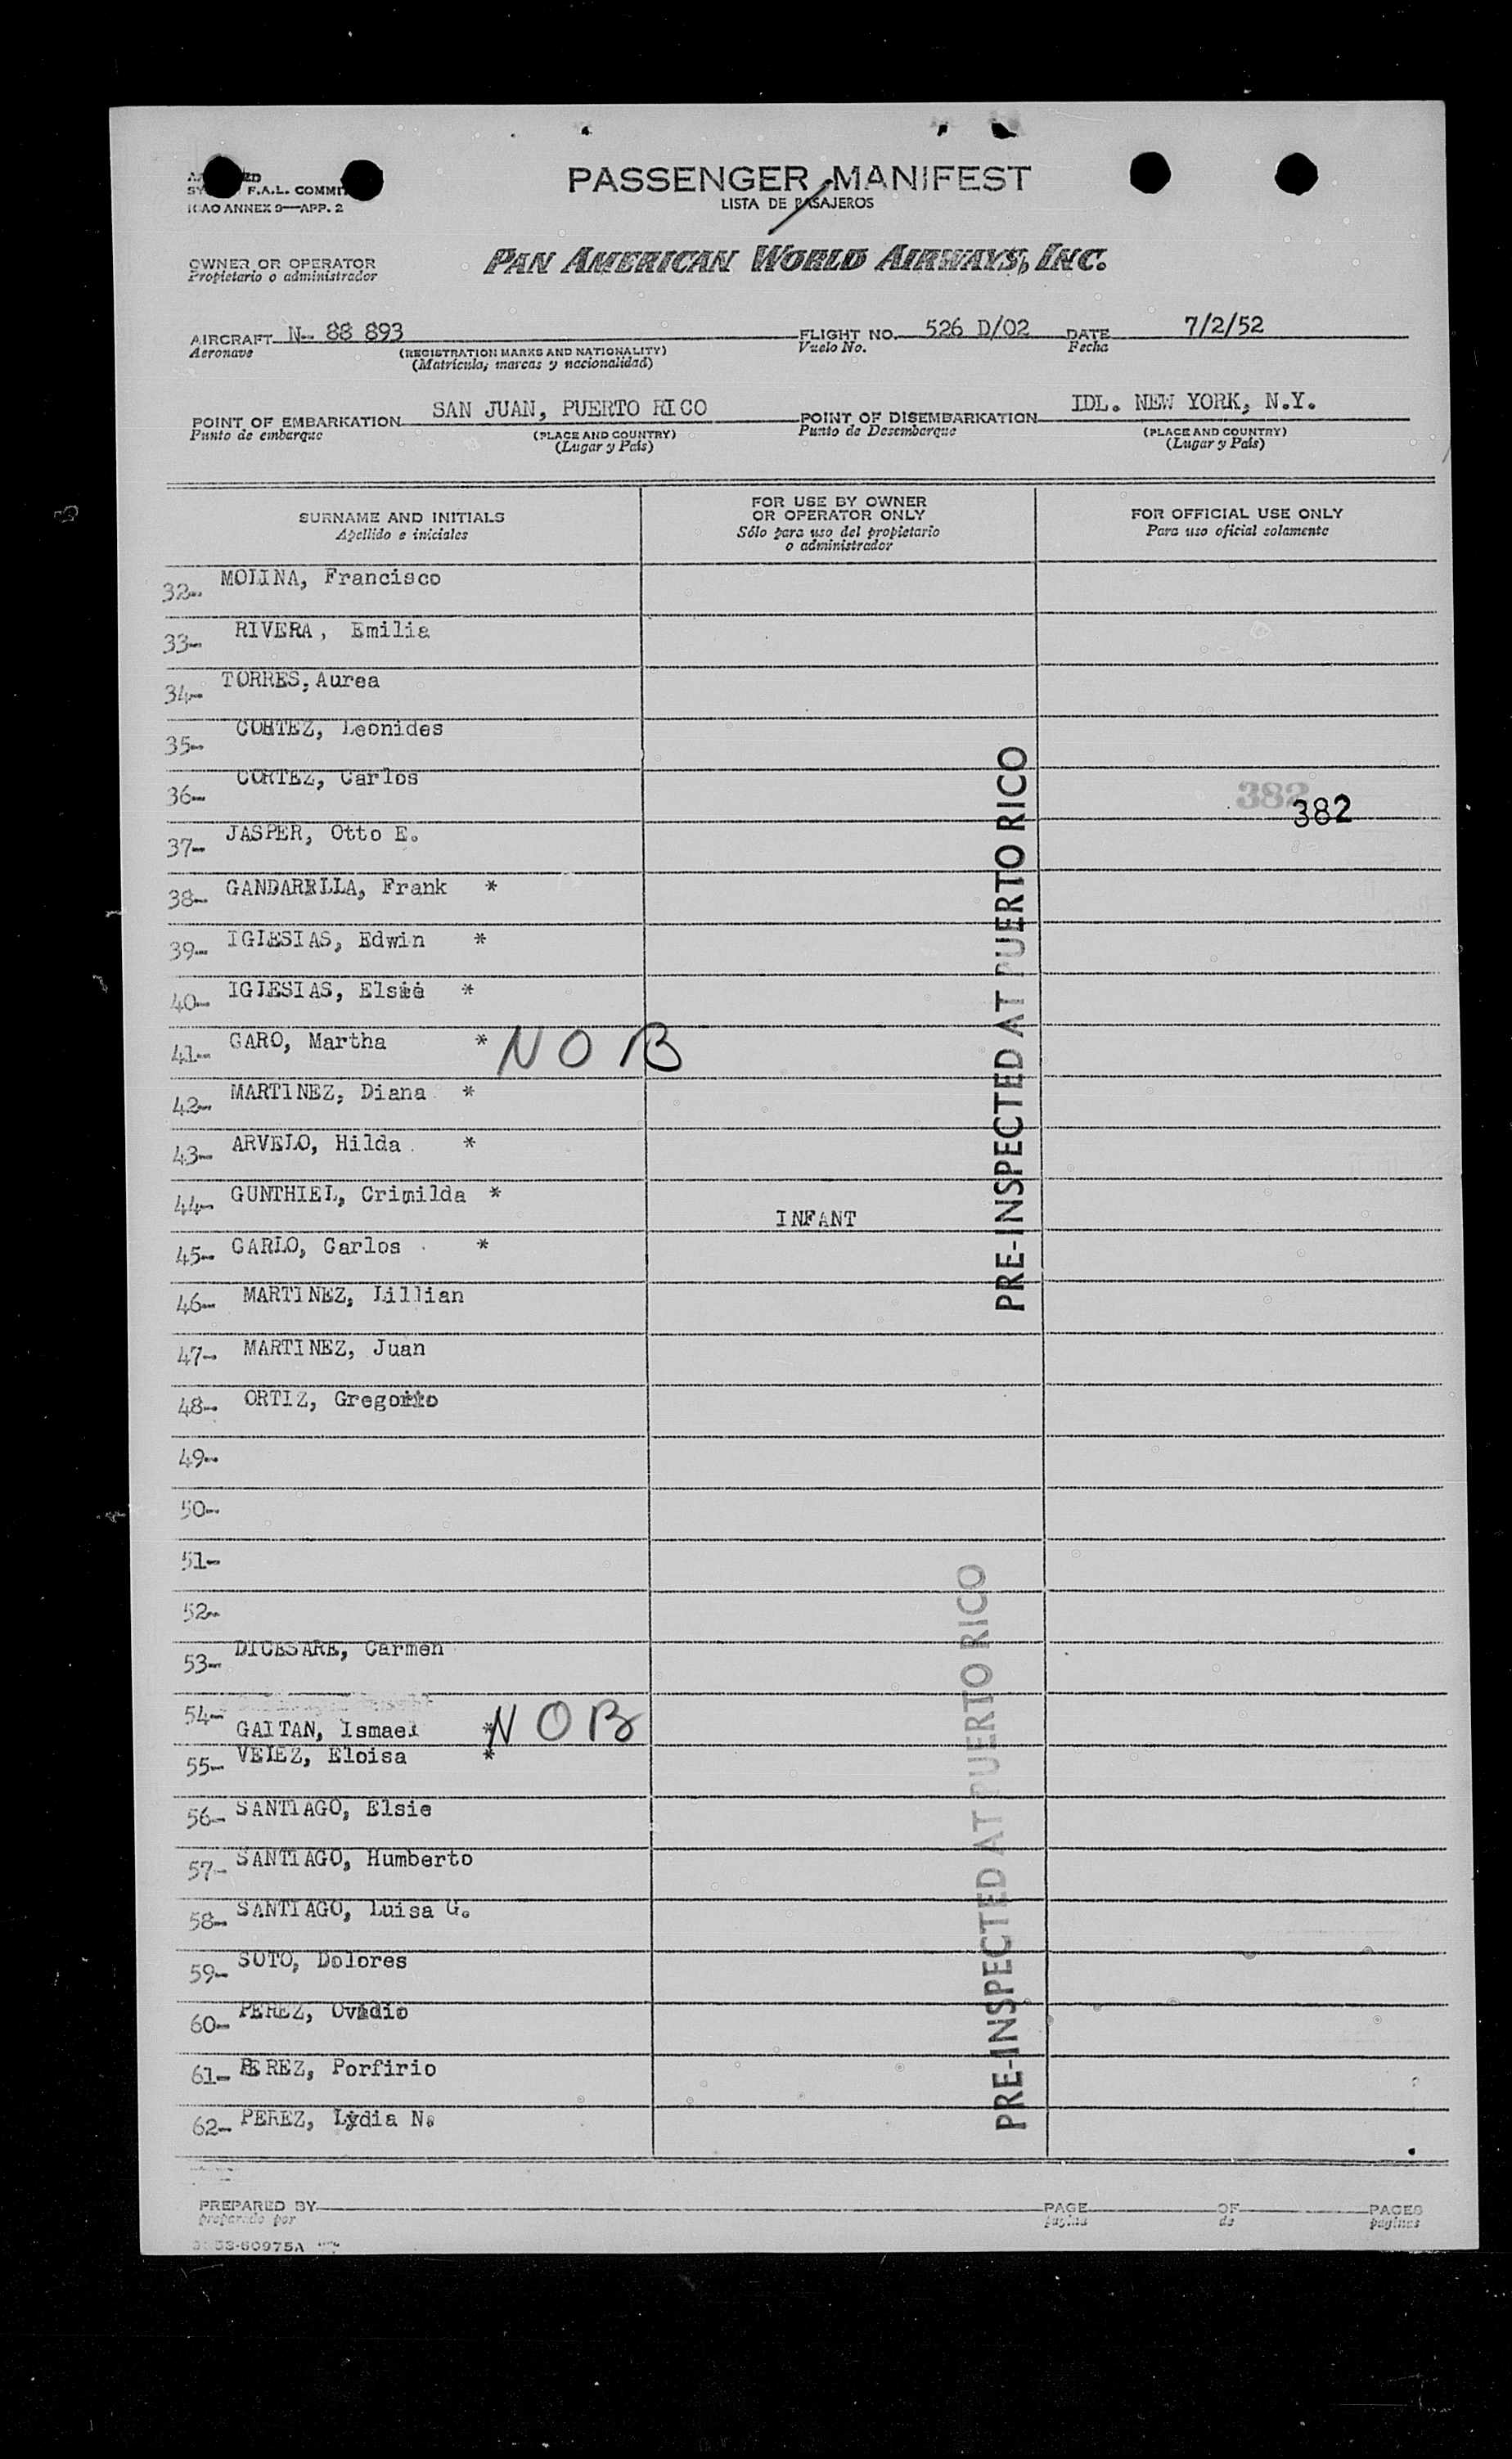 F.A.L.
ICAO ANNEX 9—APP. 2
PASSENGER MANIFEST
LISTA DE PASAJEROS
OWNER OR OPERATOR
Propietario o administrador
PAN AMERICAN WORLD AIRWAYS, INC.
AIRCRAFT N- 88 893 FLIGHT NO. 526 D/02 DATE 7/2/52
Aeronave (REGISTRATION MARKS AND NATIONALITY) Vuelo No. Fecha
(Matricula, marcas y nacionalidad)
POINT OF EMBARKATION SAN JUAN, PUERTO RICO POINT OF DISEMBARKATION IDL. NEW YORK, N.Y.
Punto de embarque (PLACE AND COUNTRY) Punto de Desembarque (PLACE AND COUNTRY)
(Lugar y País) (Lugar y País)
SURNAME AND INITIALS
Apellido e iniciales
FOR USE BY OWNER
OR OPERATOR ONLY
Sólo para uso del propietario
o administrador
FOR OFFICIAL USE ONLY
Para uso oficial solamente
32- MOLINA, Francisco
33- RIVERA, Emilia
34- TORRES, Aurea
35- CORTEZ, Leonides
36- CORTEZ, Carlos
382
382
37- JASPER, Otto E.
38- GANDARELLA, Frank *
39- IGLESIAS, Edwin *
40- IGLESIAS, Elsie *
41- GARO, Martha * NOB
42- MARTINEZ, Diana *
43- ARVELO, Hilda *
44- GUNTHIEL, Crimilda *
INFANT
45- GARLO, Carlos *
46- MARTINEZ, Lillian
47- MARTINEZ, Juan
48- ORTIZ, Gregorio
49-
50-
51-
52-
53- DICESARE, Carmen
54- GAITAN, Ismael * NOB
55- VELEZ, Eloisa *
56- SANTIAGO, Elsie
57- SANTIAGO, Humberto
58- SANTIAGO, Luisa G.
59- SOTO, Dolores
60- PEREZ, Ovidio
61- PEREZ, Porfirio
62- PEREZ, Lydia N.
PRE-INSPECTED AT PUERTO RICO
PRE-INSPECTED AT PUERTO RICO
PREPARED BY PAGE OF PAGES
preparado por pagina de paginas